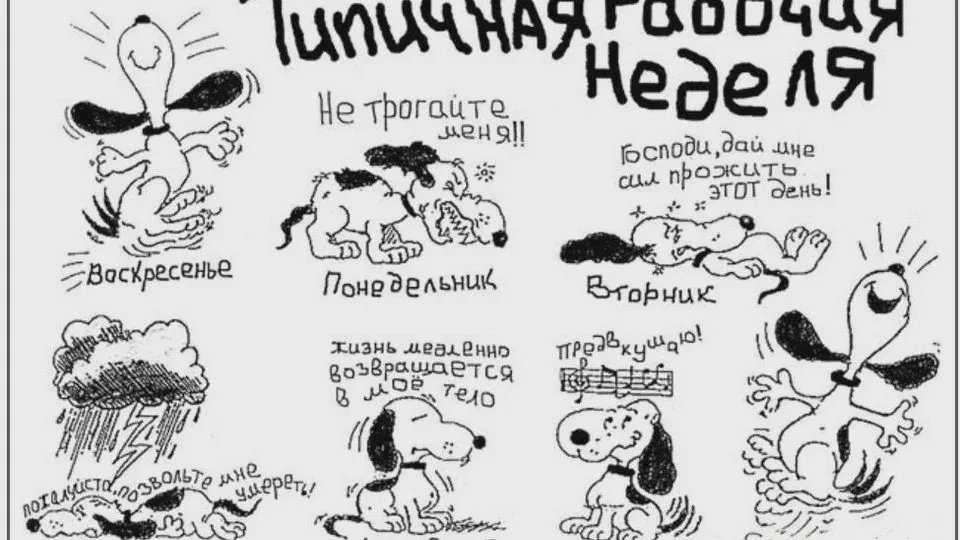 Типичная Рабочая
Неделя
Воскресенье
Не трогайте
меня!!
Понедельник
Господи, дай мне
сил прожить
этот день!
Вторник
пожалуйста, позвольте мне
умереть!
жизнь медленно
возвращается
в моё тело
предвкушаю!